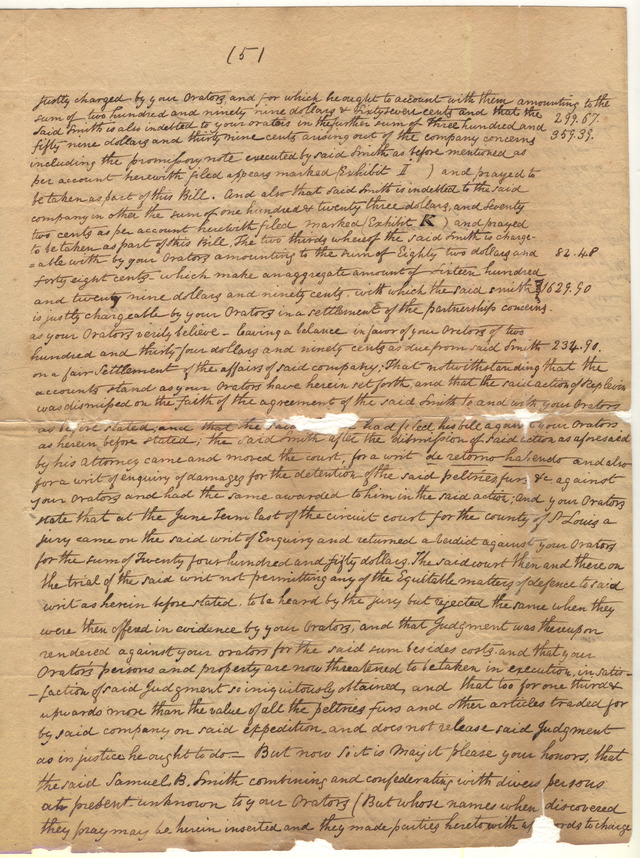 (5)
justly charged by your Orators, and for which he ought to account with them amounting to the
sum of two hundred and ninety nine dollars & sixty seven cents and that the 299.67.
said Smith is also indebted to your orators in the further sum of three hundred and
fifty nine dollars and thirty nine cents arising out of the company concerns 359.39.
including the promissory note executed by said Smith as before mentioned as
per account herewith filed appears marked Exhibit I ) and prayed to
be taken as part of this Bill. And also that said Smith is indebted to the said
company in other the sum of one hundred & twenty three dollars, and seventy
two cents as per account herewith filed marked Exhibit K ) and prayed
to be taken as part of this Bill, The two thirds whereof the said Smith is charge-
=able with by your Orators amounting to the sum of Eighty two dollars and 82.48
forty eight cents – which make an aggregate amount of sixteen hundred
and twenty nine dollars and ninety cents. with which the said Smith $1629.90
is justly chargeable by your Orators in a settlement of the partnership concerns.
as your Orators verily believe – leaving a balance in favor of your Orators of two
hundred and thirty four dollars and ninety cents as due from said Smith – 234.90.
on a fair settlement of the affairs of said company; That notwithstanding that the
accounts stand as your Orators have herein set forth, and that the said action of Replevin
was dismissed on the faith of the agreement of the said Smith to and with your Orators
as before stated, and that the said had filed his bill against your Orators
as herein before stated; the said Smith after the dismission of said action as aforesaid
by his attorney came and moved the court, for a writ de retorno habendo and also
for a writ of enquiry of damages for the detention of the said peltries furs &c against
your Orators and had the same awarded to him in the said action; And your Orators
state that at the June Term last of the circuit court for the county of St Louis a
jury came on the said writ of Enquiry and returned a verdict against your Orators
for the sum of Twenty four hundred and fifty dollars. The said court then and there on
the trial of the said writ not permitting any of the Equitable matters of defence to said
writ as herein before stated, to be heard by the jury but rejected the same when they
were then offered in evidence by your Orators, and that Judgment was thereupon
rendered against your orators for the said sum besides costs and that your
Orators persons and property are now threatened to be taken in execution, in satis-
-faction of said Judgment so iniquitously obtained, and that too for one third &
upwards more than the value of all the peltries furs and other articles traded for
by said company on said expedition, and does not release said Judgment
as in justice he ought to do – But now so it is May it please your honors, that
the said Samuel B. Smith combining and confederating with divers persons
at present unknown to your Orators (But whose names when discovered
they pray may be herein inserted and they made parties hereto with words to charge